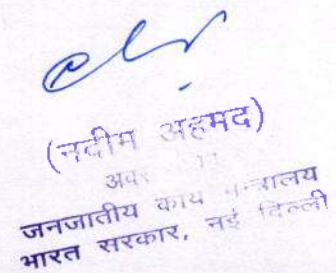 (नदीम अहमद)
जनजातीय कार्य मन्त्रालय
भारत सरकार, नई दिल्ली